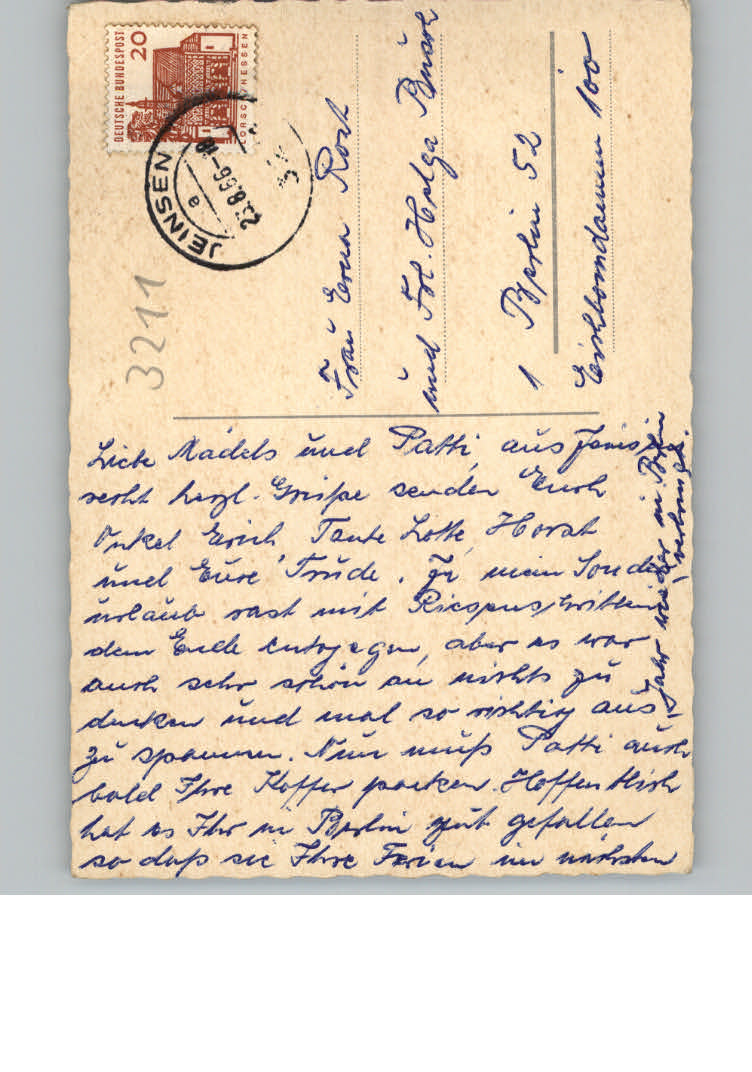 DEUTSCHE BUNDESPOST
20
LORSCH HESSEN
JEINSEN
23.8.66-18
a
3211
Frau Erna Rost
und Frl. Helga
1 Berlin 52
Eichborndamm 100
Liebe Mädels und Patti, aus
recht herzl. Grüße senden Euch
Onkel Erich, Tante Lotte, Horst
und Eure Trude. Ja, mein Sonder
urlaub rast mit
dem Ende entgegen, aber es war
auch sehr schön an nichts zu
denken und mal so richtig aus-
zu spannen. Nun muß Patti auch
bald Ihre Koffer packen. Hoffentlich
hat es Ihr in Berlin gut gefallen
so daß sie Ihre Ferien im nächsten
Jahr wieder in Berlin
verbringt.